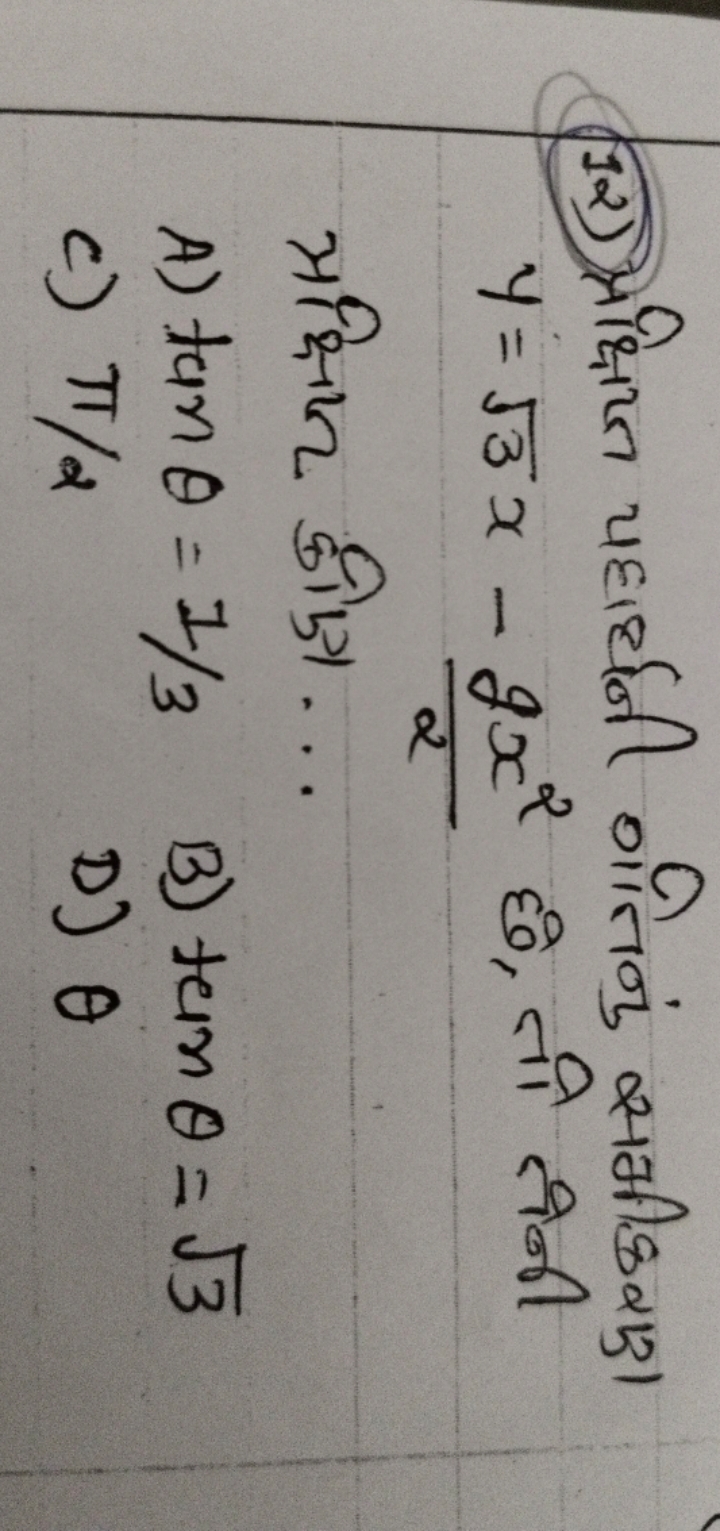 12) પ્રક્ષિપ્ત પદાર્થની ગતિનું સમીકરણ
y = √3 x − gx²/2 છે, તો તેનો
પ્રક્ષિપ્ત કોણ ...
A) tan θ = 1/3 B) tan θ = √3
C) π/2 D) θ